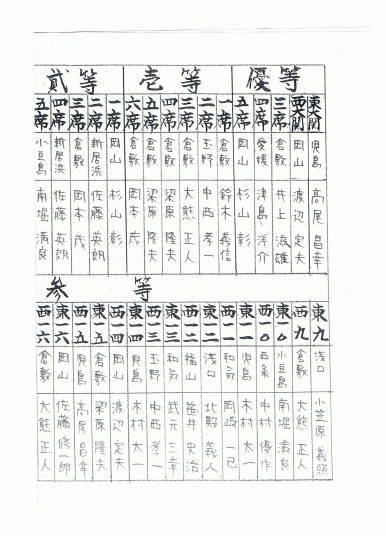 優等
東関 児島 高尾昌幸
西関 岡山 渡辺定夫
三席 倉敷 井上滋雄
四席 愛媛 津島洋介
五席 岡山 杉山彰
壱等
一席 倉敷 鈴木義信
二席 玉野 中西孝一
三席 倉敷 大熊正人
四席 倉敷 梁原隆夫
五席 倉敷 梁原隆夫
六席 倉敷 岡本茂
貳等
一席 岡山 杉山彰
二席 新居浜 佐藤英朗
三席 倉敷 岡本茂
四席 新居浜 佐藤英朗
五席 小豆島 南堀満良
参等
東九 浅口 小笠原義照
西九 倉敷 大熊正人
東一〇 小豆島 南堀満良
西一〇 西条 中村優作
東一一 児島 木村太一
西一一 和気 岡崎一己
東一二 浅口 北殿義人
西一二 福山 笹井史治
東一三 和気 武元三章
西一三 玉野 中西孝一
東一四 児島 木村太一
西一四 岡山 渡辺定夫
東一五 倉敷 梁原隆夫
西一五 児島 高尾昌幸
東一六 岡山 佐藤修一郎
西一六 倉敷 大熊正人